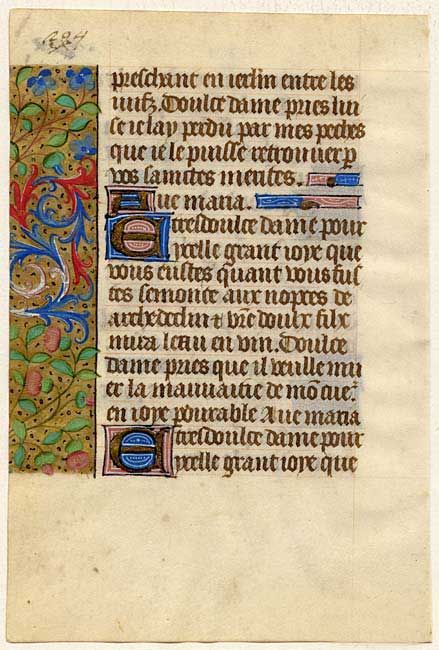 preschant en ierlm entre les
iuifz. Doulce dame pries lui
se ie lay perdu par mes peches
que ie le puisse retrouuer p
vos sainctes merites.
Aue maria.
E tresdoulce dame pour
ycelle grant ioye que
vous eustes quant vous fus
tes semonce aux nopces de
archedeclin & vr̃e doulx filx
mua leau en vin. Doulce
dame pries que il veuille mu
er la mauuaitie de mõ cuer
en ioye pdurable Aue maria
E tresdoulce dame pour
ycelle grant ioye que